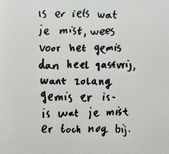 Is er iets wat
je mist, wees
voor het gemis
dan heel gastvrij,
want zolang
gemis er is-
is wat je mist
er toch nog bij.